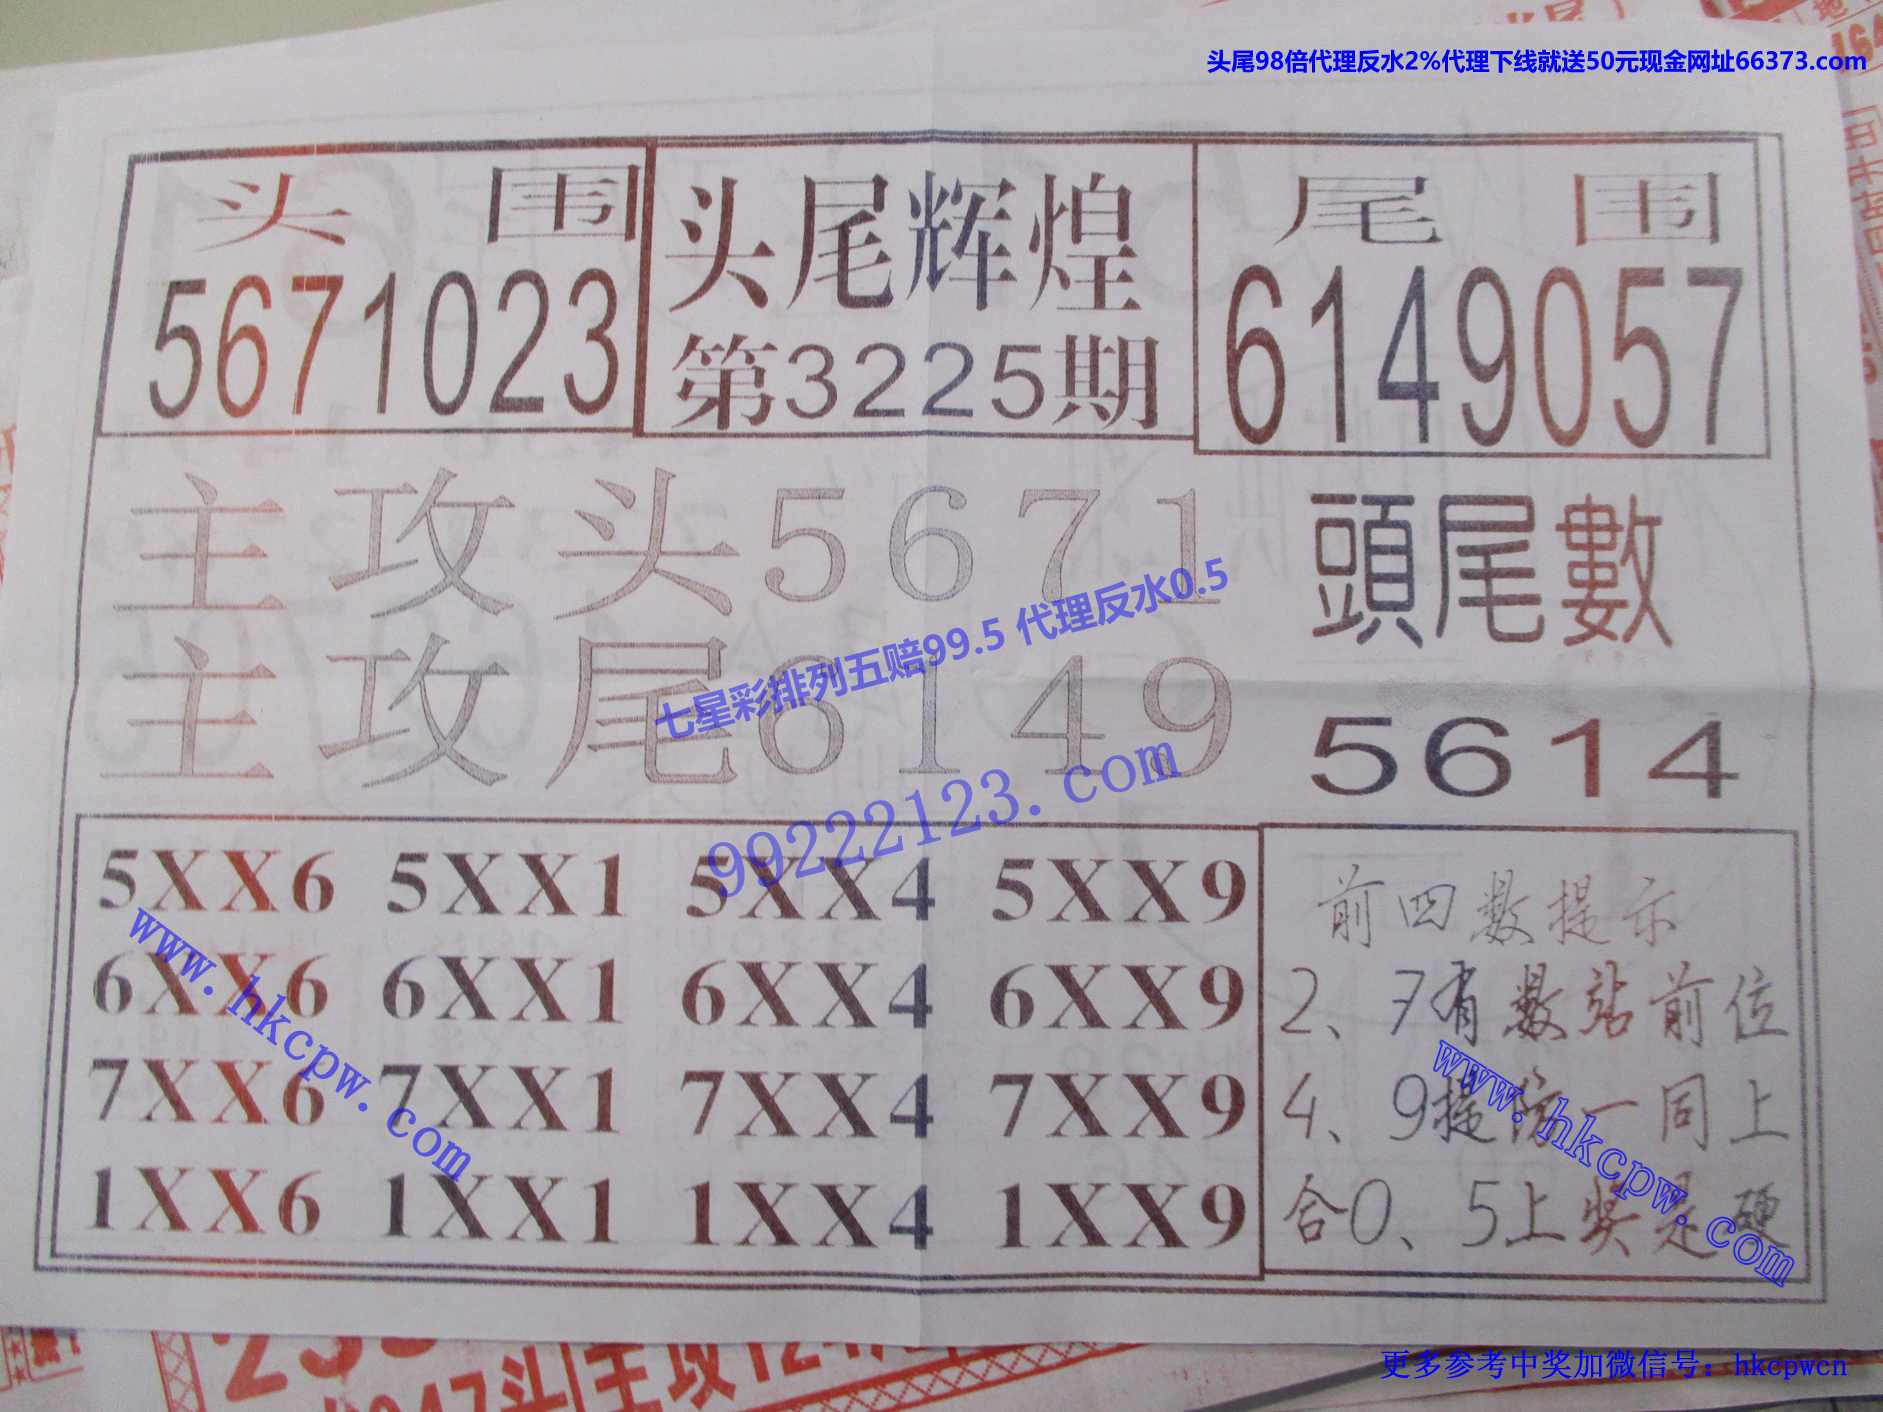 头尾98倍代理反水2%代理下线就送50元现金网址66373.com
头围
5671023
头尾辉煌
第3225期
尾围
6149057
主攻头5671
主攻尾6149
頭尾數
5614
七星彩排列五赔99.5 代理反水0.5
99222123.com
5XX6 5XX1 5XX4 5XX9
6XX6 6XX1 6XX4 6XX9
7XX6 7XX1 7XX4 7XX9
1XX6 1XX1 1XX4 1XX9
www.hkcpw.com
前四数提示
2、7有数站前位
4、9提防一同上
合0、5上奖是硬
www.hkcpw.com
更多参考中奖加微信号：hkcpwcn